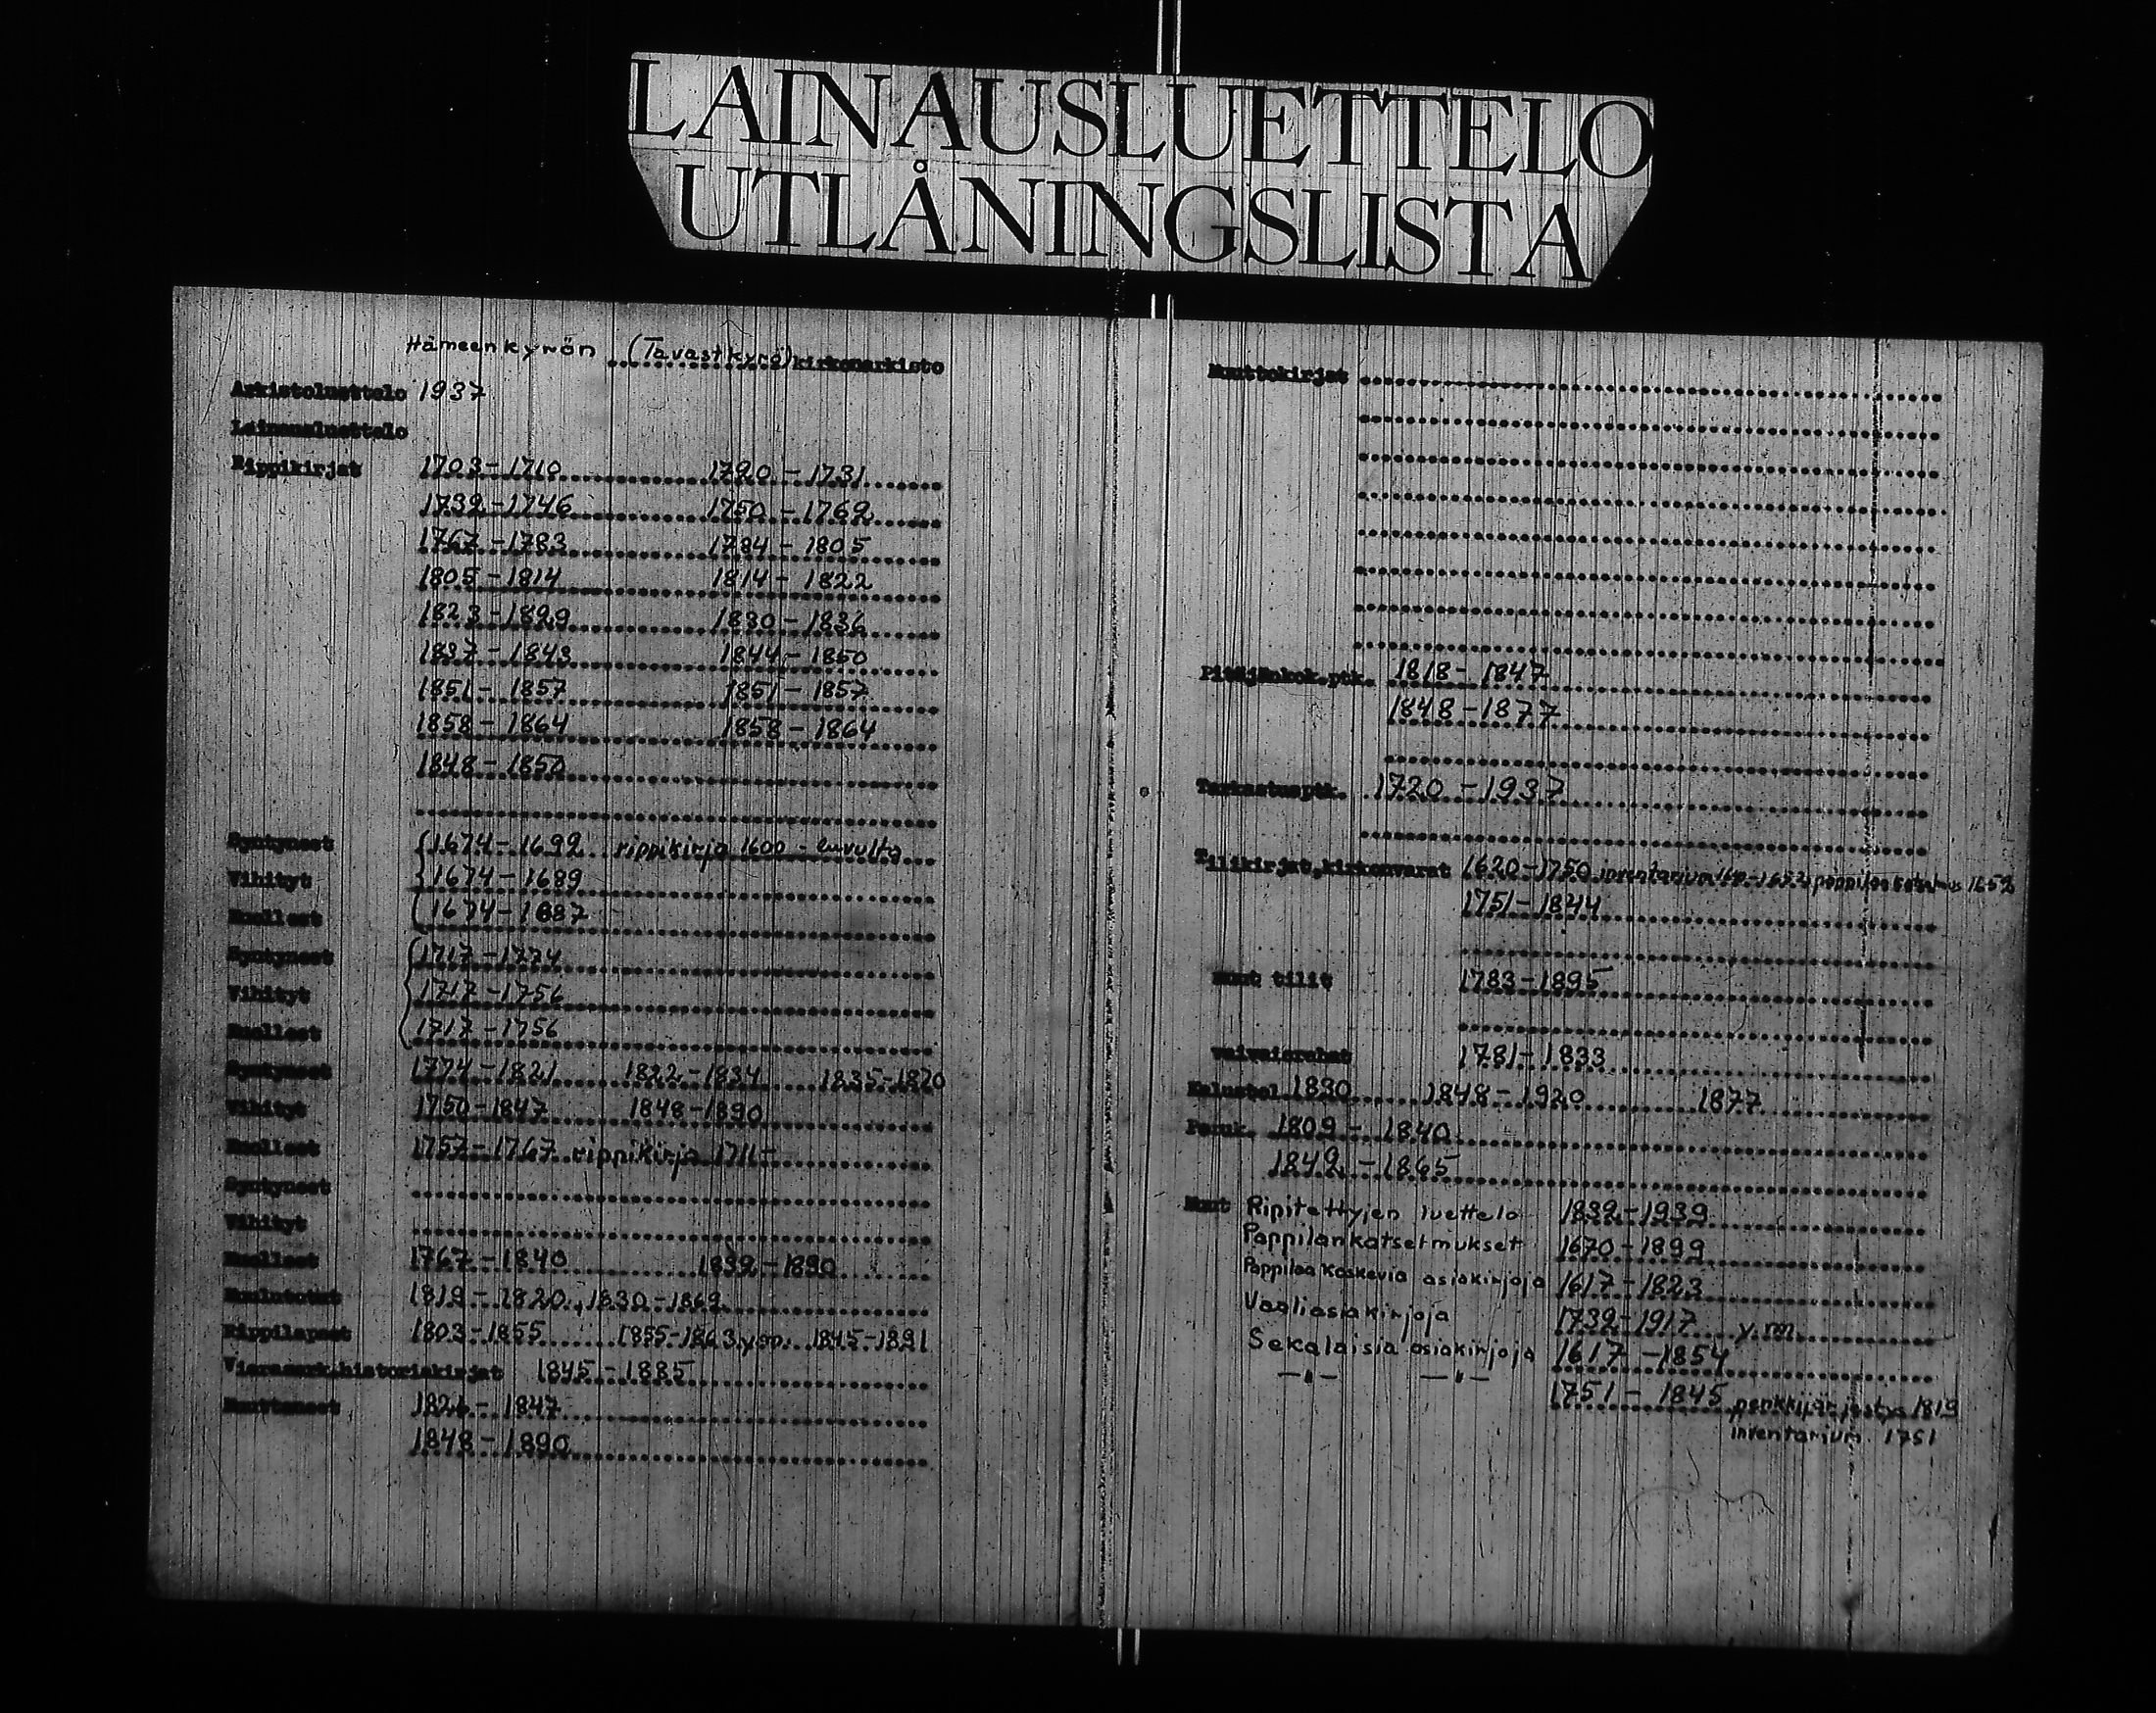 LAINAUSLUETTELO
UTLÅNINGSLISTA
Hämeenkyrön (Tavastkyrö) kirkonarkisto
Arkistoluettelo 1937
Lainausluettelo
Rippikirjat 1703-1710 1720-1731
1732-1746 1750-1762
1767-1783 1784-1805
1805-1814 1814-1822
1823-1829 1830-1836
1837-1843 1844-1850
1851-1857 1851-1857
1858-1864 1858-1864
1848-1850
Syntyneet 1674-1692 rippikirja 1600-luvulta
Vihityt 1674-1689
Kuolleet 1674-1687
Syntyneet 1717-1774
Vihityt 1717-1756
Kuolleet 1717-1756
Syntyneet 1774-1821 1822-1834 1835-1870
Vihityt 1750-1847 1848-1890
Kuolleet 1757-1767 rippikirja 1711-
Syntyneet
Vihityt
Kuolleet 1767-1840 1832-1890
Kuulutetut 1819-1820, 1830-1869
Rippilapset 1803-1855 1855-1863 ym. 1845-1891
Vierasmrk.historiakirjat 1845-1885
Muuttaneet 1826-1847
1848-1890
Muuttokirjat
Pitäjänkok.ptk. 1818-1847
1848-1877
Tarkastusptk. 1720-1937
Tilikirjat,kirkonvarat 1620-1750 inventarium 1652
1751-1844
Muut tilit 1783-1895
vaivaisrahat 1781-1833
Kalustol. 1890 1848-1920 1877
Peruk. 1809-1840
1842-1865
Muut Ripitettyjen luettelo 1832-1939
Pappilankatselmukset 1670-1899
Pappilaa koskevia asiakirjoja 1617-1823
Vaaliasiakirjoja 1732-1917 y.m.
Sekalaisia asiakirjoja 1617-1854
-"- -"- 1751-1845 penkkijärjestys 1819
inventarium 1751